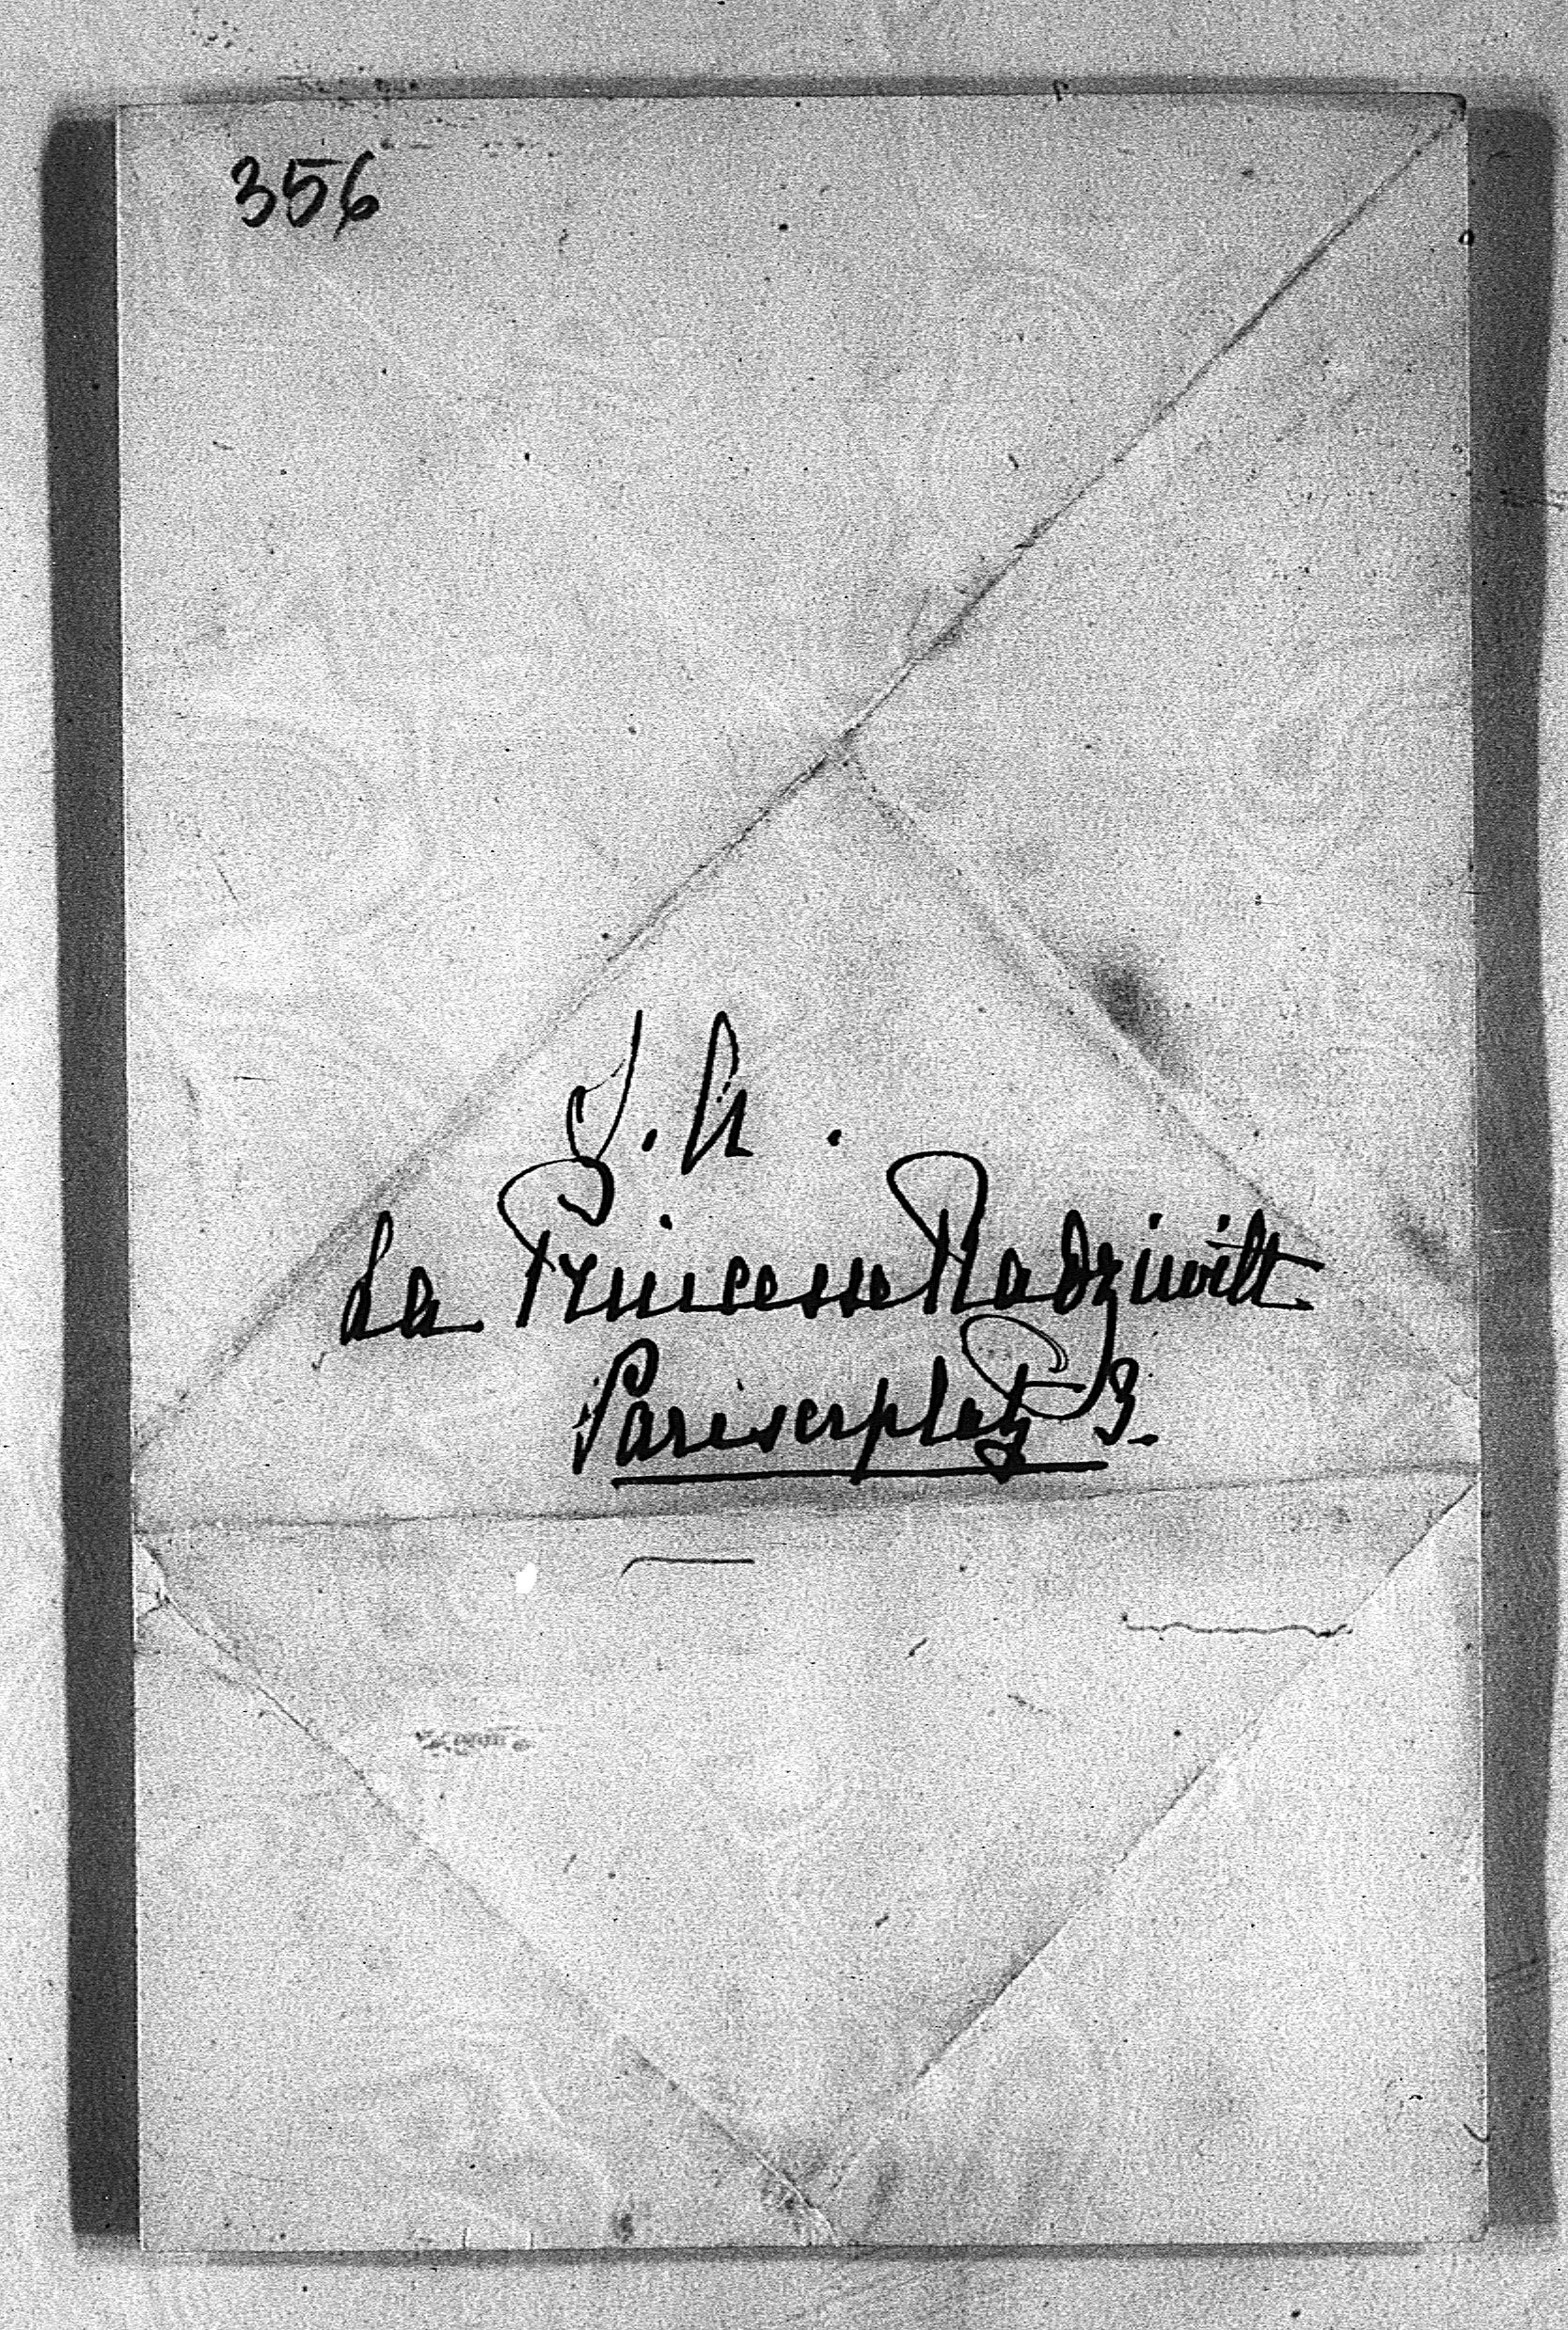 356
J. D.
La Princesse Radziwill
Pariserplatz 3.